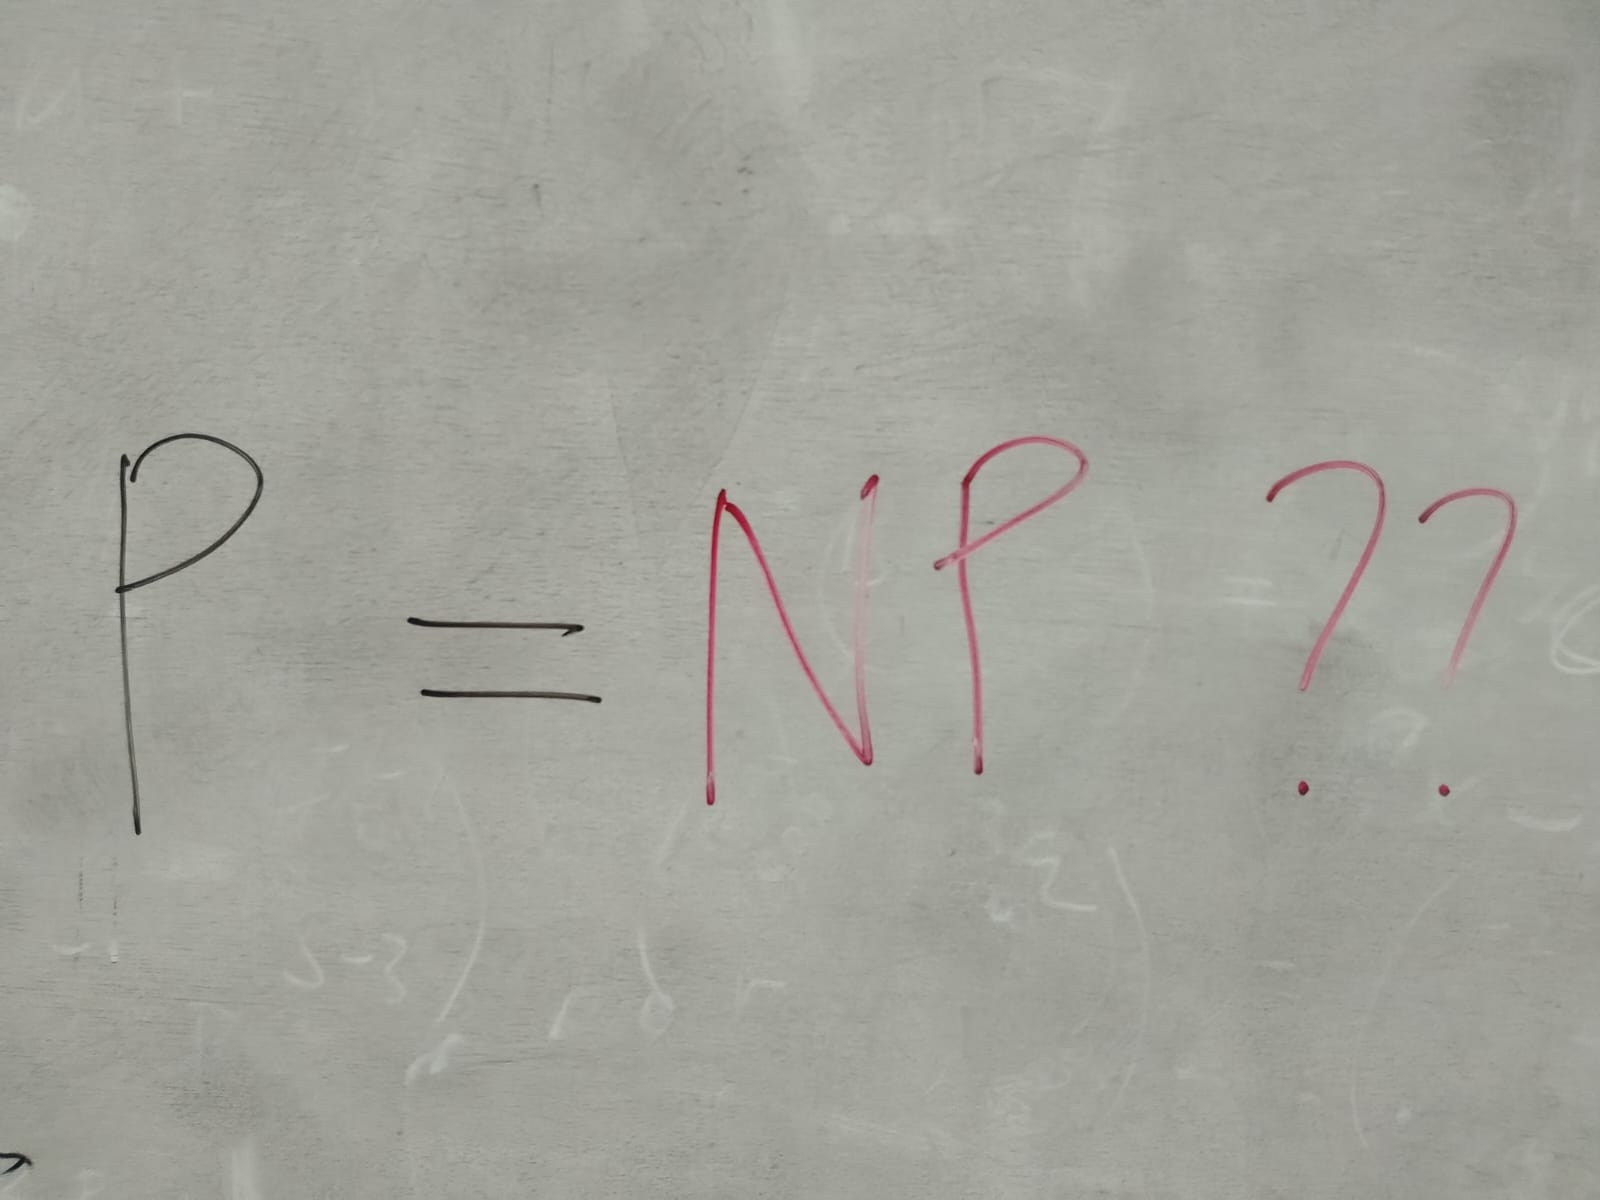 P = NP ??